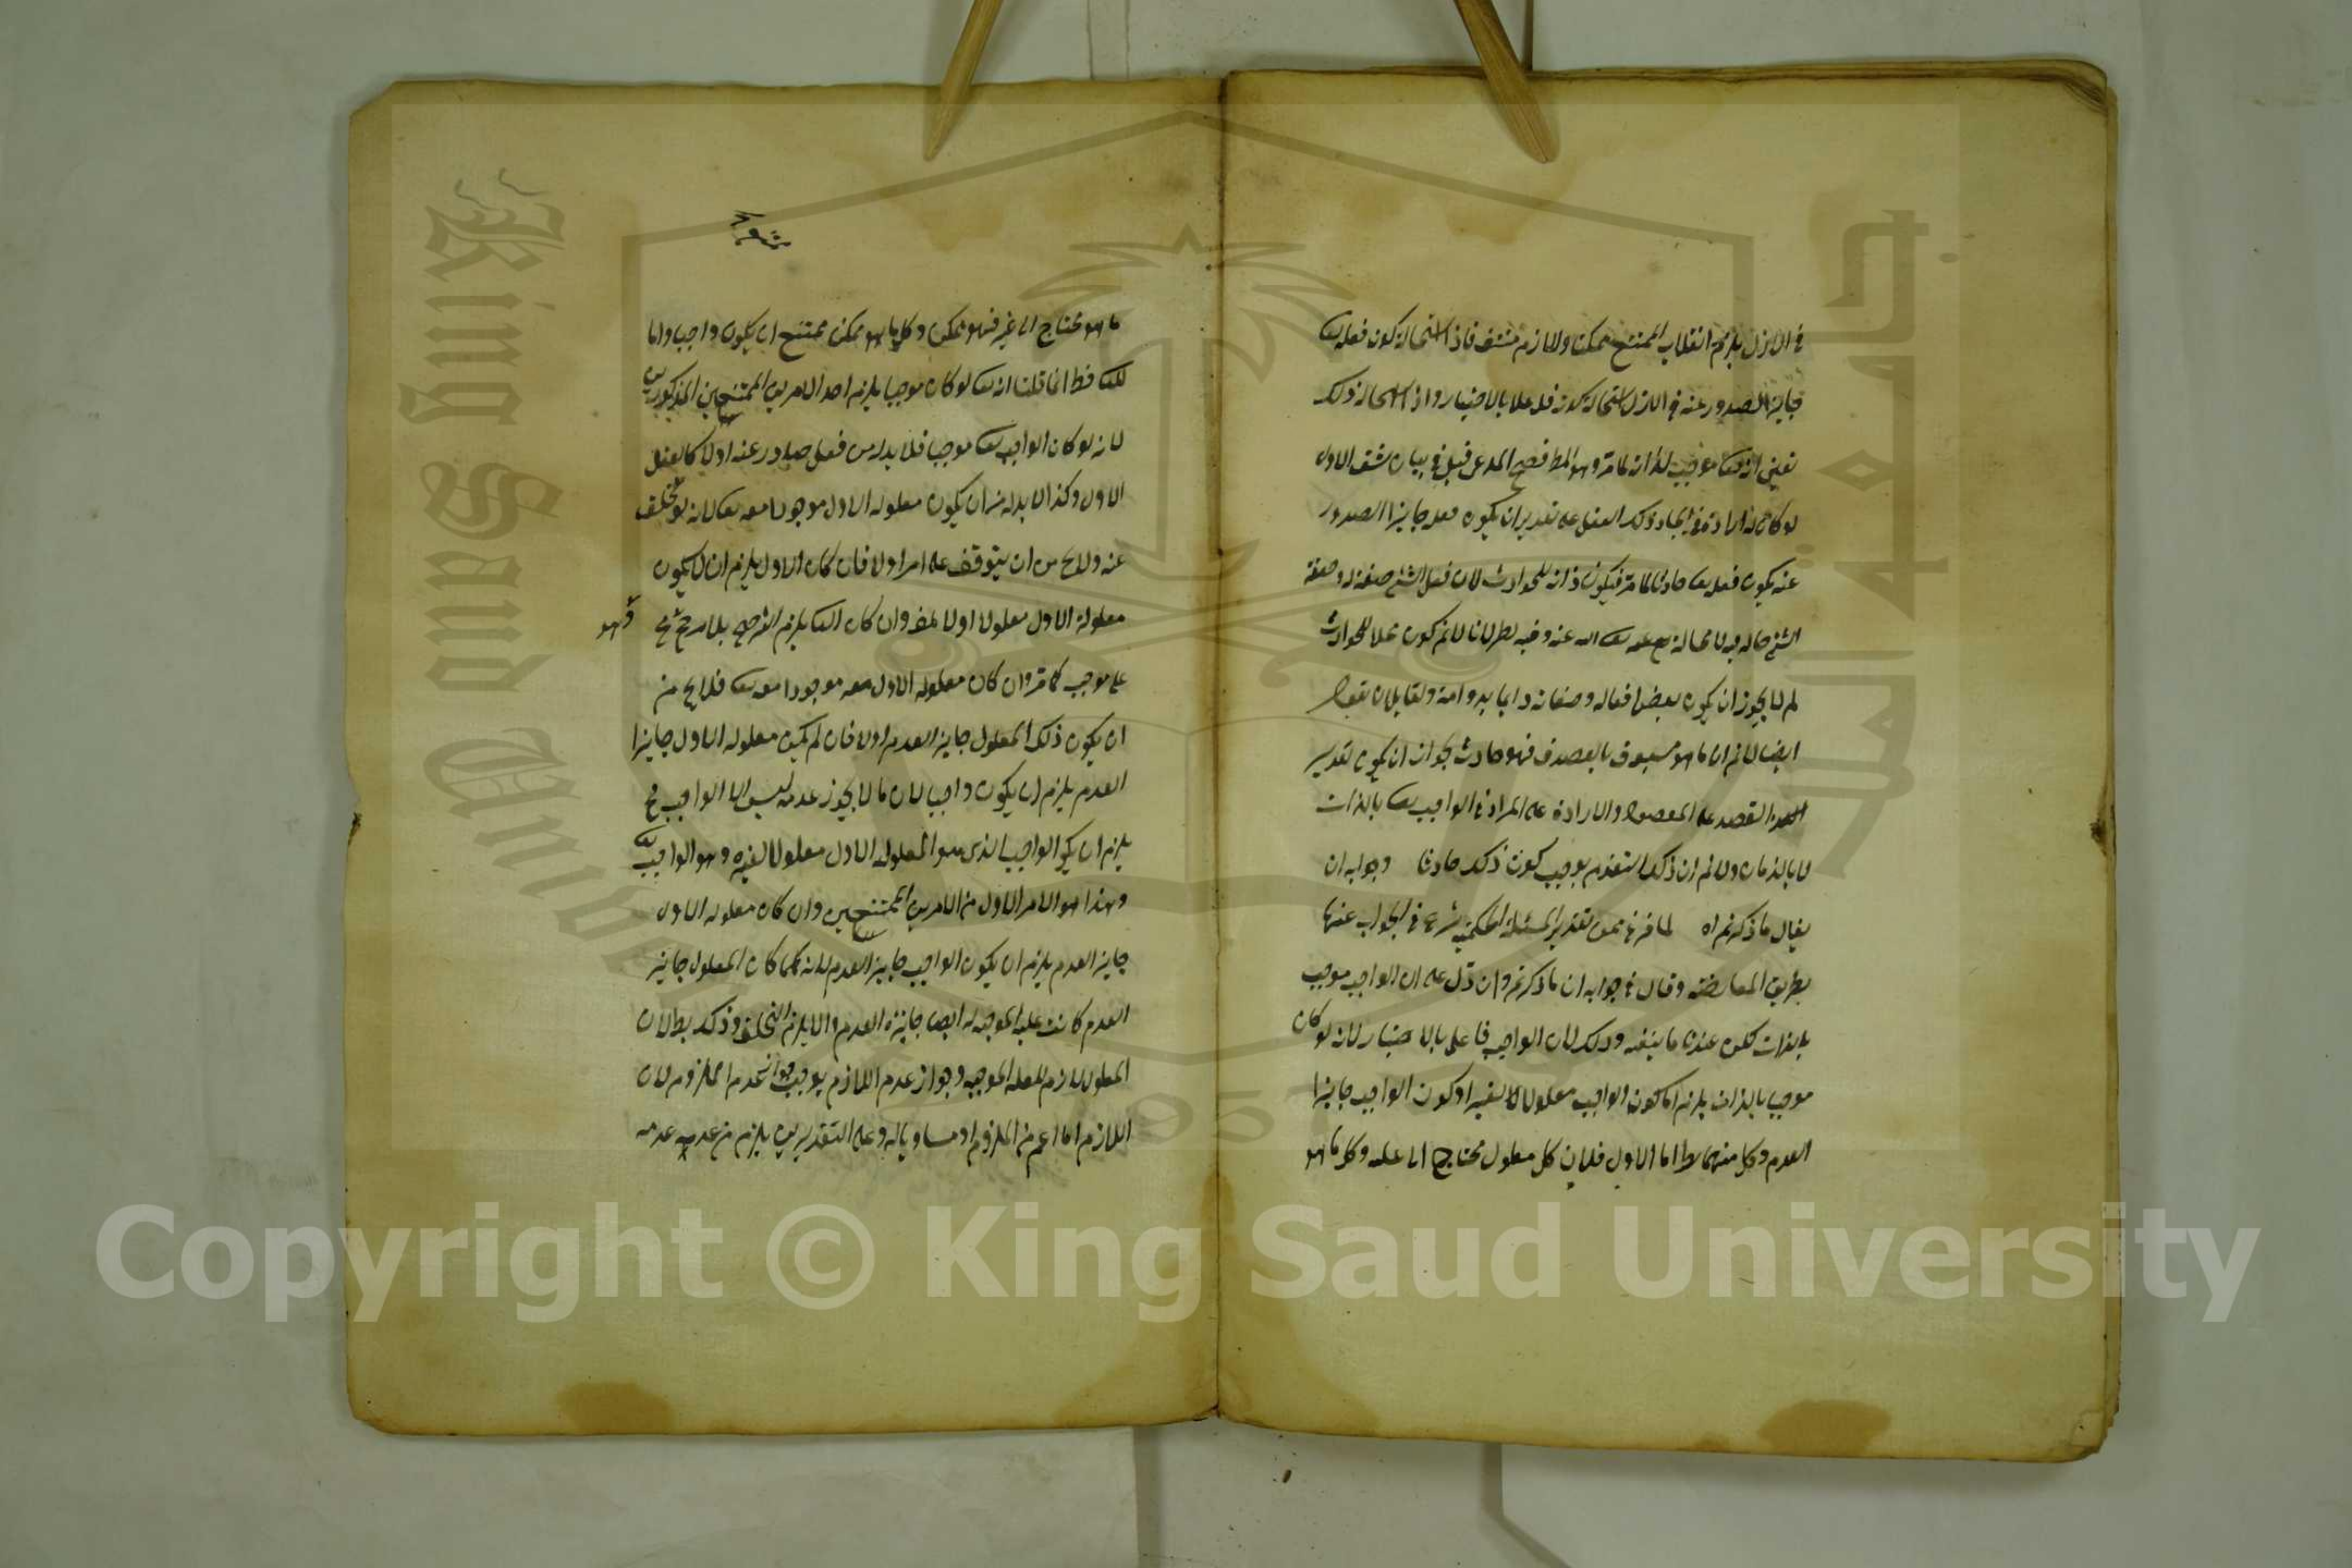 في الازل يلزم انقلاب الممتنع ممكنا واللازم منتف فاذ استحالة كون فعله تعا
جايز الصدور عنه في الازل استحال كونه فاعلا بالاختيار واذ استحال ذلك
تعين انه تعا موجب لذاته لما مر وهو المط فصح المدعى قيل في بيان شق الاول
لو كان له ارادة في ايجاد ذلك الفعل على تقدير ان يكون فعله جايز الصدور
عنه يكون فعله تعا حادثا لما مر فيكون ذاته للحوادث لان فعل الشئ صفة له وصفة
الشئ حاله فيه لا محالة تعالى الله عنه وفيه نظر لانا لانم كونه محلا للحوادث
لم لا يجوز ان يكون بعض افعاله وصفاته دايما بدوامه ولقايل ان يقول
ايضا لانم ان ما هو مسبوق بالقصد فهو حادث لجواز ان يكون تقدير
القصد على المقصود والارادة على المراد في الواجب تعا بالذات
لا بالزمان ولانم ان ذلك التقدم يوجب كون ذلك حادثا وجوابه ان
يقال ما ذكرتم اه لما فرغ من تقدير المسئلة الحكمية شرع في الجواب عنها
بطريق المعارضة وقال في جوابه ان ما ذكرتم وان دل على ان الواجب موجب
بالذات لكن عندنا ما ينفيه وذلك لان الواجب فاعل بالاختيار لانه لو كان
موجبا بالذات يلزم اما كون الواجب معلولا لغيره او كون الواجب جايز
العدم وكل منهما بط اما الاول فلان كل معلول محتاج الى علته وكل ما هو
ما هو محتاج الى غيره فهو ممكن وكل ما هو ممكن ممتنع ان يكون واجبا واما
فظ انما قلنا انه تعا لو كان موجبا يلزم احد الامرين الممتنعين المذكورين
لانه لو كان الواجب تعا موجبا فلا بد له من فعل صادر عنه اولا كالعقل
الاول وكذا لا بد له من ان يكون معلوله الاول موجودا معه تعا لانه لو تخلف
عنه ولا يخ من ان يتوقف على امر اولا فان كان الاول يلزم ان لا يكون
معلوله الاول معلولا اولا وان كان يلزم الترجيح بلا مرجح
وهو
على موجب كما مر وان كان معلوله الاول معه موجودا معه تعا فلا يخ من
ان يكون ذلك المعلول جايز العدم اولا فان لم يكن معلوله الاول جايز
العدم يلزم ان يكون واجبا لان ما لا يجوز عدمه ليس الا الواجب فح
يلزم ان يكون الواجب الذي هو المعلول الاول معلولا لغيره وهو الواجب تعا
وهذا هو الامر الاول من الامرين الممتنعين وان كان معلوله الاول
جايز العدم يلزم ان يكون الواجب جايز العدم لانه كلما كان المعلول جايز
العدم كانت علته الموجبة له ايضا جايزة العدم والا يلزم التخلف وذلك بط لان
المعلول لازم للعلة الموجبة وجواز عدم اللازم يوجب جواز عدم الملزوم لان
اللازم اما اعم من الملزوم او مساويا له وعلى التقديرين يلزم من عدمه عدمه